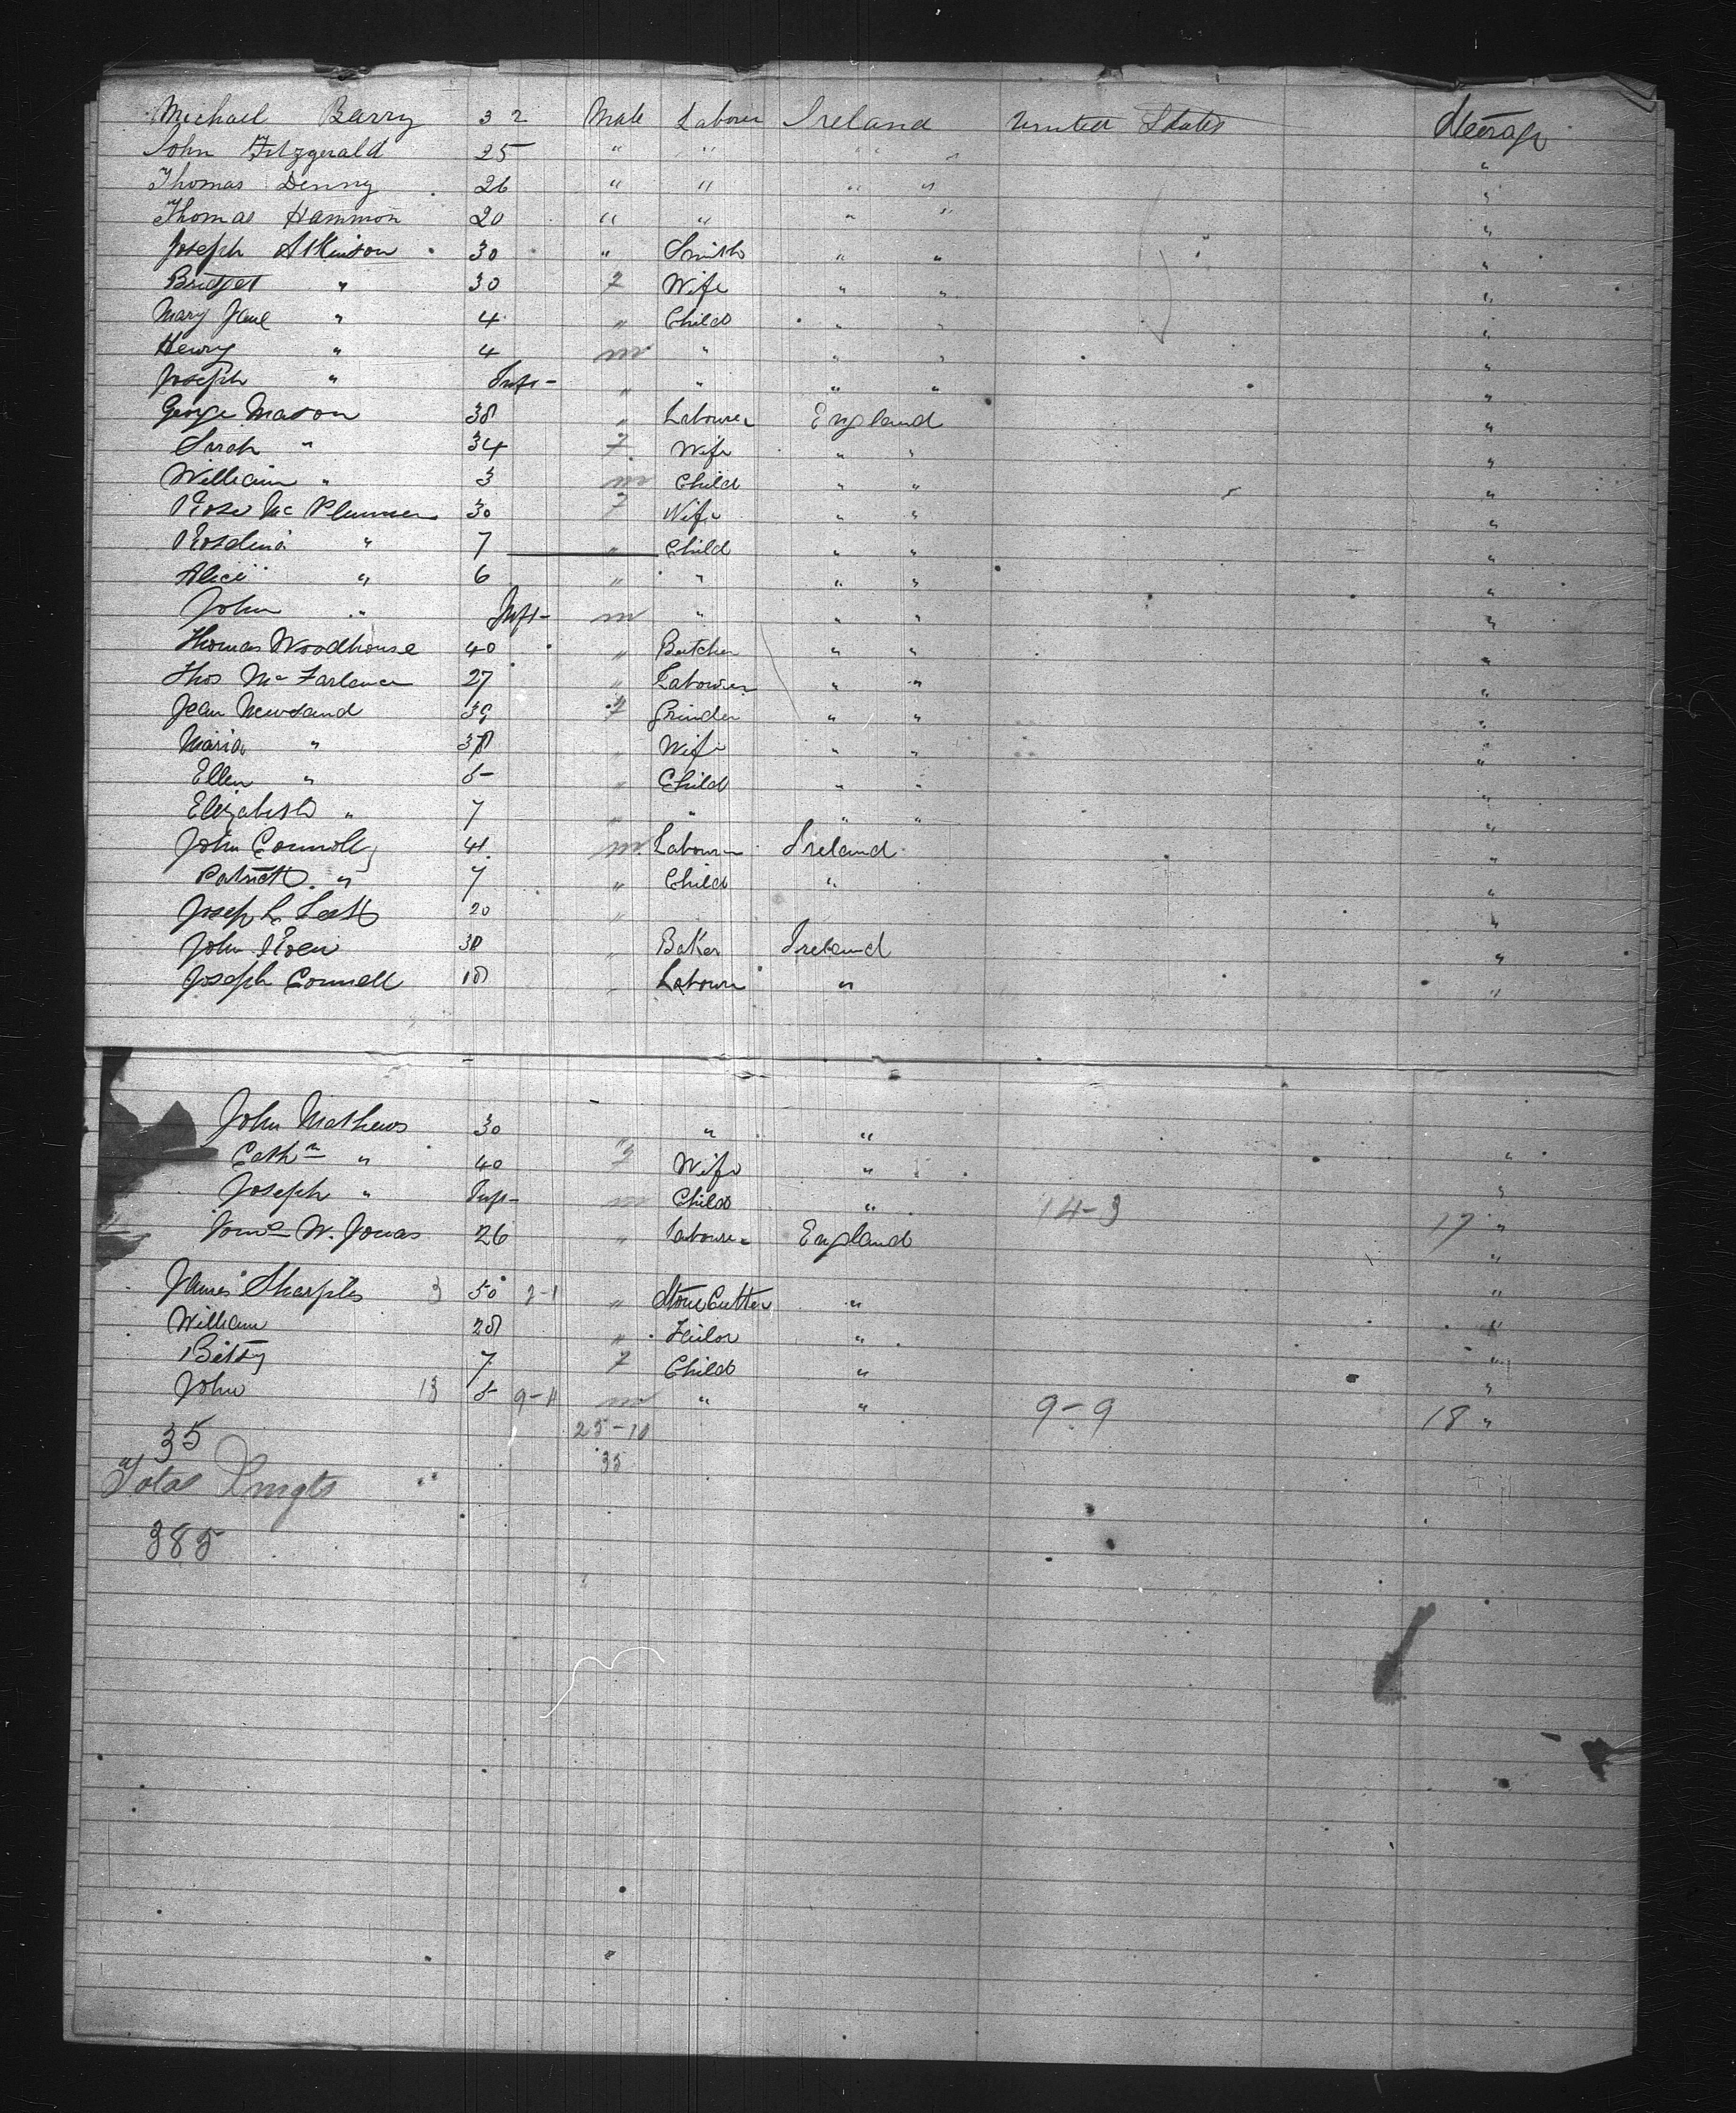 Michael Barry 32 Male Labourer Ireland United States Steerage
John Fitzgerald 25 " " " " "
Thomas Denny 26 " " " " "
Thomas Hammon 20 " " " " "
Joseph Atkinson 30 " Smith " " "
Bridget " 30 F Wife " " "
Mary Jane " 4 " Child " " "
Henry " 4 m " " " "
Joseph " Inft " " " " "
George Mason 38 " Labourer England "
Sarah " 34 F Wife " " "
William " 3 m Child " " "
Rose Mc 30 F Wife " " "
Rosdina " 7 " Child " " "
Alice " 6 " " " " "
John " Inft m " " " "
Thomas Woodhouse 40 " Butcher " " "
Thos McFarlane 27 " Labourer " " "
Jean Newsand 39 F Grinder " " "
Maria " 38 " Wife " " "
Ellen " 5 " Child " " "
Elizabeth " 7 " " " " "
John Connolly 41 m Labourer Ireland "
Patrick " 7 " Child " "
Joseph L. 20 " "
John 38 " Baker Ireland "
Joseph Connell 18 " Labourer " "
John Mathews 30 " " "
Cathn " 40 F Wife " "
Joseph " Inft m Child " 14-3 17 "
W. Jonas 26 " Labourer England "
James Sharples 3 50 2-1 " Stone Cutter " "
William 28 " Tailor " "
Betty 7 F Child " "
John 13 5 9-4 m " " 9-9 18 "
35 25-10
35
Total Pasngts
385